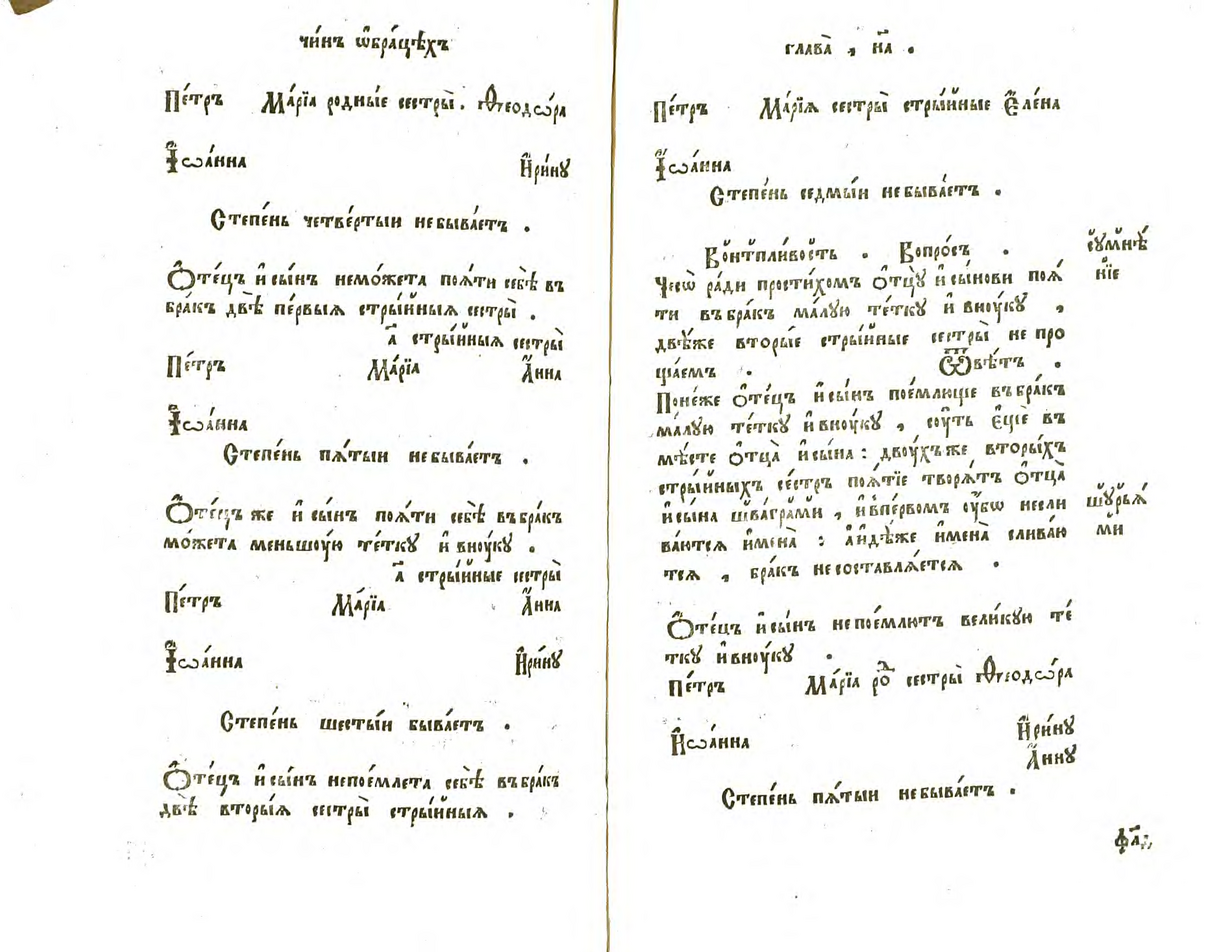 чи́нъ ѡ҆бра́цѣхъ
Пе́тръ Ма́рїа родны́е сестры̀. Ѳео́дѡра
І҆ѡа́нна И҆ри́ну
Степе́нь четве́ртыи небыва́етъ .
Ѻ҆те́цъ и҆сы́нъ немо́жета поѧ́ти себѣ̀ въ
бра́къ двѣ̀ пе́рвыѧ стры́йныѧ сестры̀ .
а҃ стры́йныѧ сестры̀
Пе́тръ Ма́рїа А҆́нна
І҆ѡа́нна
Степе́нь пѧ́тыи небыва́етъ .
Ѻ҆те́цъже и҆ сы́нъ поѧ́ти себѣ̀ вѣбра́къ
мо́жета меньшоую те́тку и҆ вноу́ку .
а҃ стры́йные сестры̀
Пе́тръ Ма́рїа А҆́нна
І҆ѡа́нна И҆ри́ну
Степе́нь шесты́и быва́етъ .
Ѻ҆те́цъ и҆сы́нъ непое́млета себѣ̀ въбра́къ
двѣ̀ вторы́ѧ сестры̀ стры́йныѧ .
глава̀ , н҃а .
Пе́тръ Ма́рїѧ сестры̀ стры́йные Е҆ле́на
І҆ѡа́нна
Степе́нь седмы́и небыва́етъ .
Во́нтпливость . Вопро́съ . сумнѣ́
Чесѡ̀ ра́ди прости́хомъ ѻ҆тцу̀ и҆сы́нови поѧ́ нїе
ти въбра́къ ма́лую те́тку и҆ вноу́ку ,
двѣ́же вторы́е стры́йные сестры̀ не про
ща́емъ . Ѿвѣ́тъ .
Поне́же ѻ҆те́цъ и҆сы́нъ пое́млюще въбра́къ
ма́лую те́тку и҆вноу́ку , соу́ть е҆щѐ въ
мѣ́сте ѻ҆тца̀ и҆сы́на : двоу́хъже вторы́хъ
стры́йныхъ се́стръ поѧ́тїе творѧ́тъ ѻ҆тца̀
и҆сы́на шва́грами , и҆впе́рвомъ оу҆́бѡ несли шурьѧ́
ва́ютсѧ и҆мена̀ : а҆и҆дѣ́же и҆мена̀ слива́ю ми
тсѧ , бра́къ несоставлѧ́етсѧ .
Ѻ҆те́цъ и҆сы́нъ непое́млютъ вели́кую те́
тку и҆вноу́ку .
Пе́тръ Ма́рїа ро́д сестры̀ Ѳео́дѡра
И҆ѡа́нна И҆ри́ну
А҆́нну
Степе́нь пѧ́тыи небыва́етъ .
ф҃л